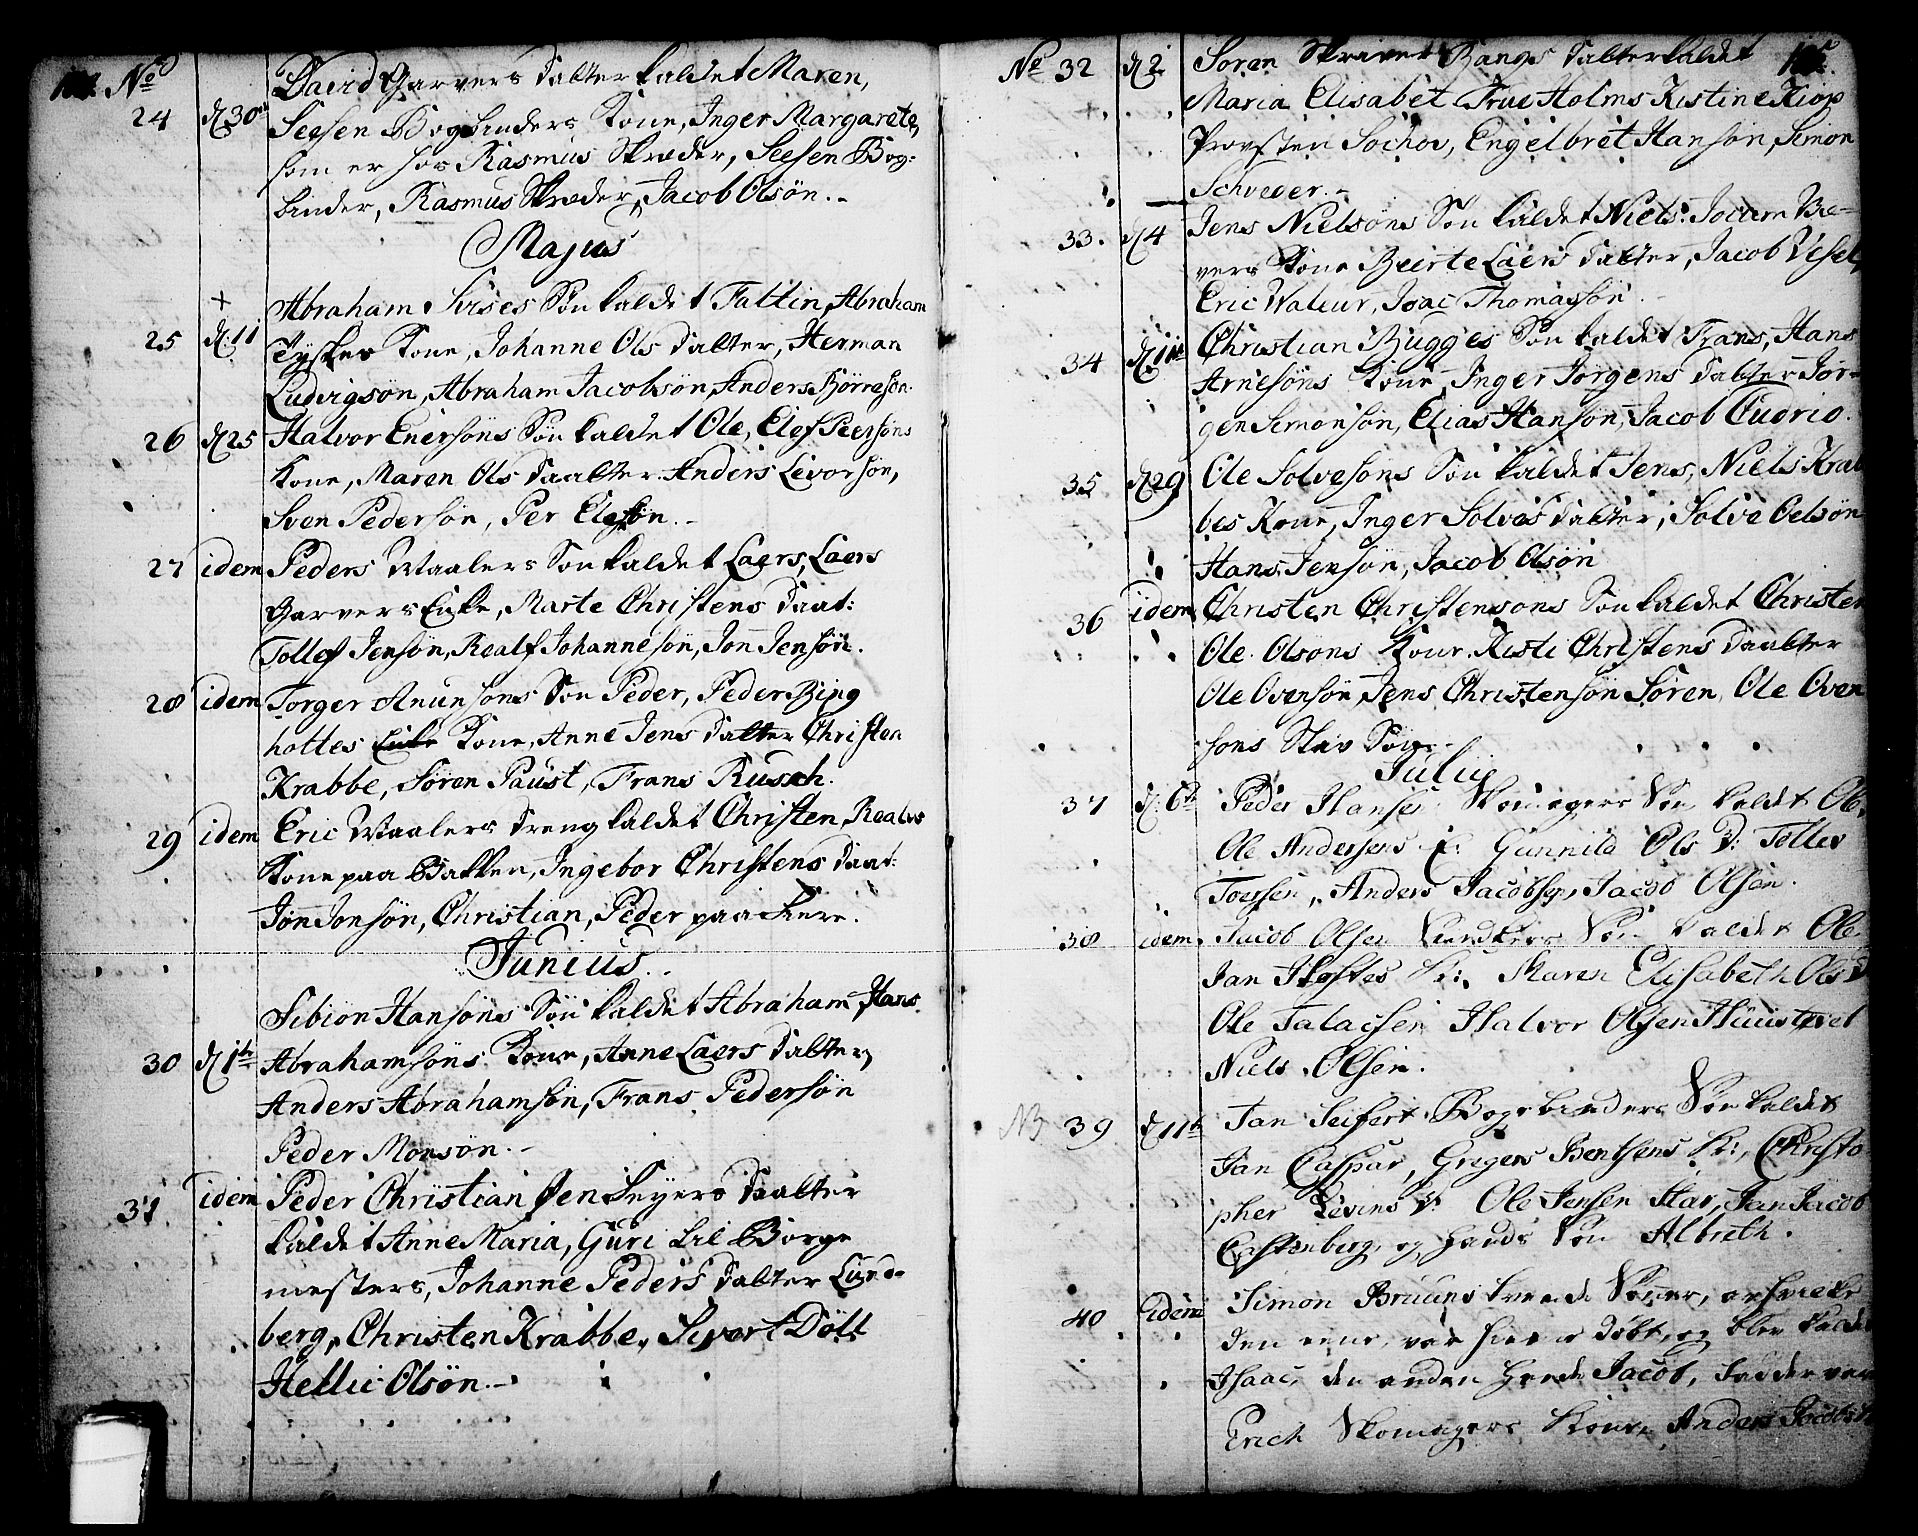 No
24 d. 30 David Garvers datter kaldet Maren,
Seesen Bogbinders Kone, Inger Margarete,
som er hos Rasmus Skræder, Seesen Bog-
binder, Rasmus Skræder, Jacob Olsön.-
Majus
+
Abraham Sön kaldet Fattin, Abraham
25 d. 11 Tyskes Kone, Johanne Ols datter, Herman
Ludvigsön, Abraham Jacobsön, Anders Börresön.
26 d. 25 Halvor Enersöns Sön kaldet Ole, Elef Peersöns
Kone, Maren Ols daatter. Anders Livorsön,
Sven Pedersön, Per Elefsön.-
27 idem Peders Maalers Sön kaldet Laers, Laers
Garvers Enke, Marte Christens daat:
Tollef Jensön, Realf Johannesön, Jon Jensön.
28 idem Torger Anunsons Sön Peder, Peder Bing
hottes Enke Kone, Anne Jens datter Christen
Krabbe, Sören Paust, Frans Rusch.
29 idem Eric Maalers dreng kaldet Christen, Realvs
Kone paa Bakken, Ingebor Christens daat:
Jon Jonsön, Christian, Peder paa
Junius.
Sibion Hansöns Sön kaldet Abraham Hans
30 d. 1te Abrahamsöns Kone, Anne Laers datter,
Anders Abrahamsön, Frans Pedersön
Peder Monsön.-
31 idem Peder Christian Jen daatter
kaldet Anne Maria, Guri til Borge
mesters, Johanne Peders datter Lund-
berg, Christen Krabbe, Sivort Dött
Hellic Olsön.-
No 32 d. 2 Sören Skriver Bangs datter kaldet
Maria Elisabet True Holms Kistine Kiöp
Provsten Sochov, Engelbret Hansön, Simon
Schveder.-
33. d. 4 Jens Nielsöns Sön kaldet Niels. Jocum Bæ-
vers Kone Beirte Laers datter, Jacob Vesel,
Eric Waleur, Isac Thomassön.
34 d. 11te Christian Bugges Sön kaldet Frans, Hans
Arnesöns Kone, Inger Jörgens datter Jör-
gen Simonsön, Elias Hansön, Jacob Cudrio.
35 d. 29 Ole Solvesöns Sön kaldet Jens, Niels Krab
bes Kone, Inger Solves datter, Solve Oelsön
Hans Jensön, Jacob Olsön
36 idem Christen Christensons Sön kaldet Christen
Ole Olsöns Kone Kisti Christens daatter
Ole Ovensön, Jens Christensön Sören, Ole Oven
söns Sön.
Julii
37 d. 6te Peder Hanses Skomagers Sön kaldet Ole,
Ole Andersens K: Gunnild Ols D: Tollev
Toersen, Anders Jacobsen, Jacob Olsen.
38 idem. Jacob Olsen Sön kaldet Ole.
Jan K: Maren Elisabeth Ols D
Ole Talacsen Halvor Olsen
Niels Olsen.
NB 39 d. 11te Jan Seifert Bogbinders Sön kaldet
Jan Caspar, Gregers Bentsens K:, Christo
pher Levins D: Ole Jensen Star, Jean Jacob
Castenberg, og hands Sön Albreth.
40 idem Simon Bruuns tvende Sönner, af hvilke
den eene, var hiemme döbt, og blev kaldet
Isaac, den anden heede Jacob, Fadder var
Erich Skomagers Kone, Anders Jacobs